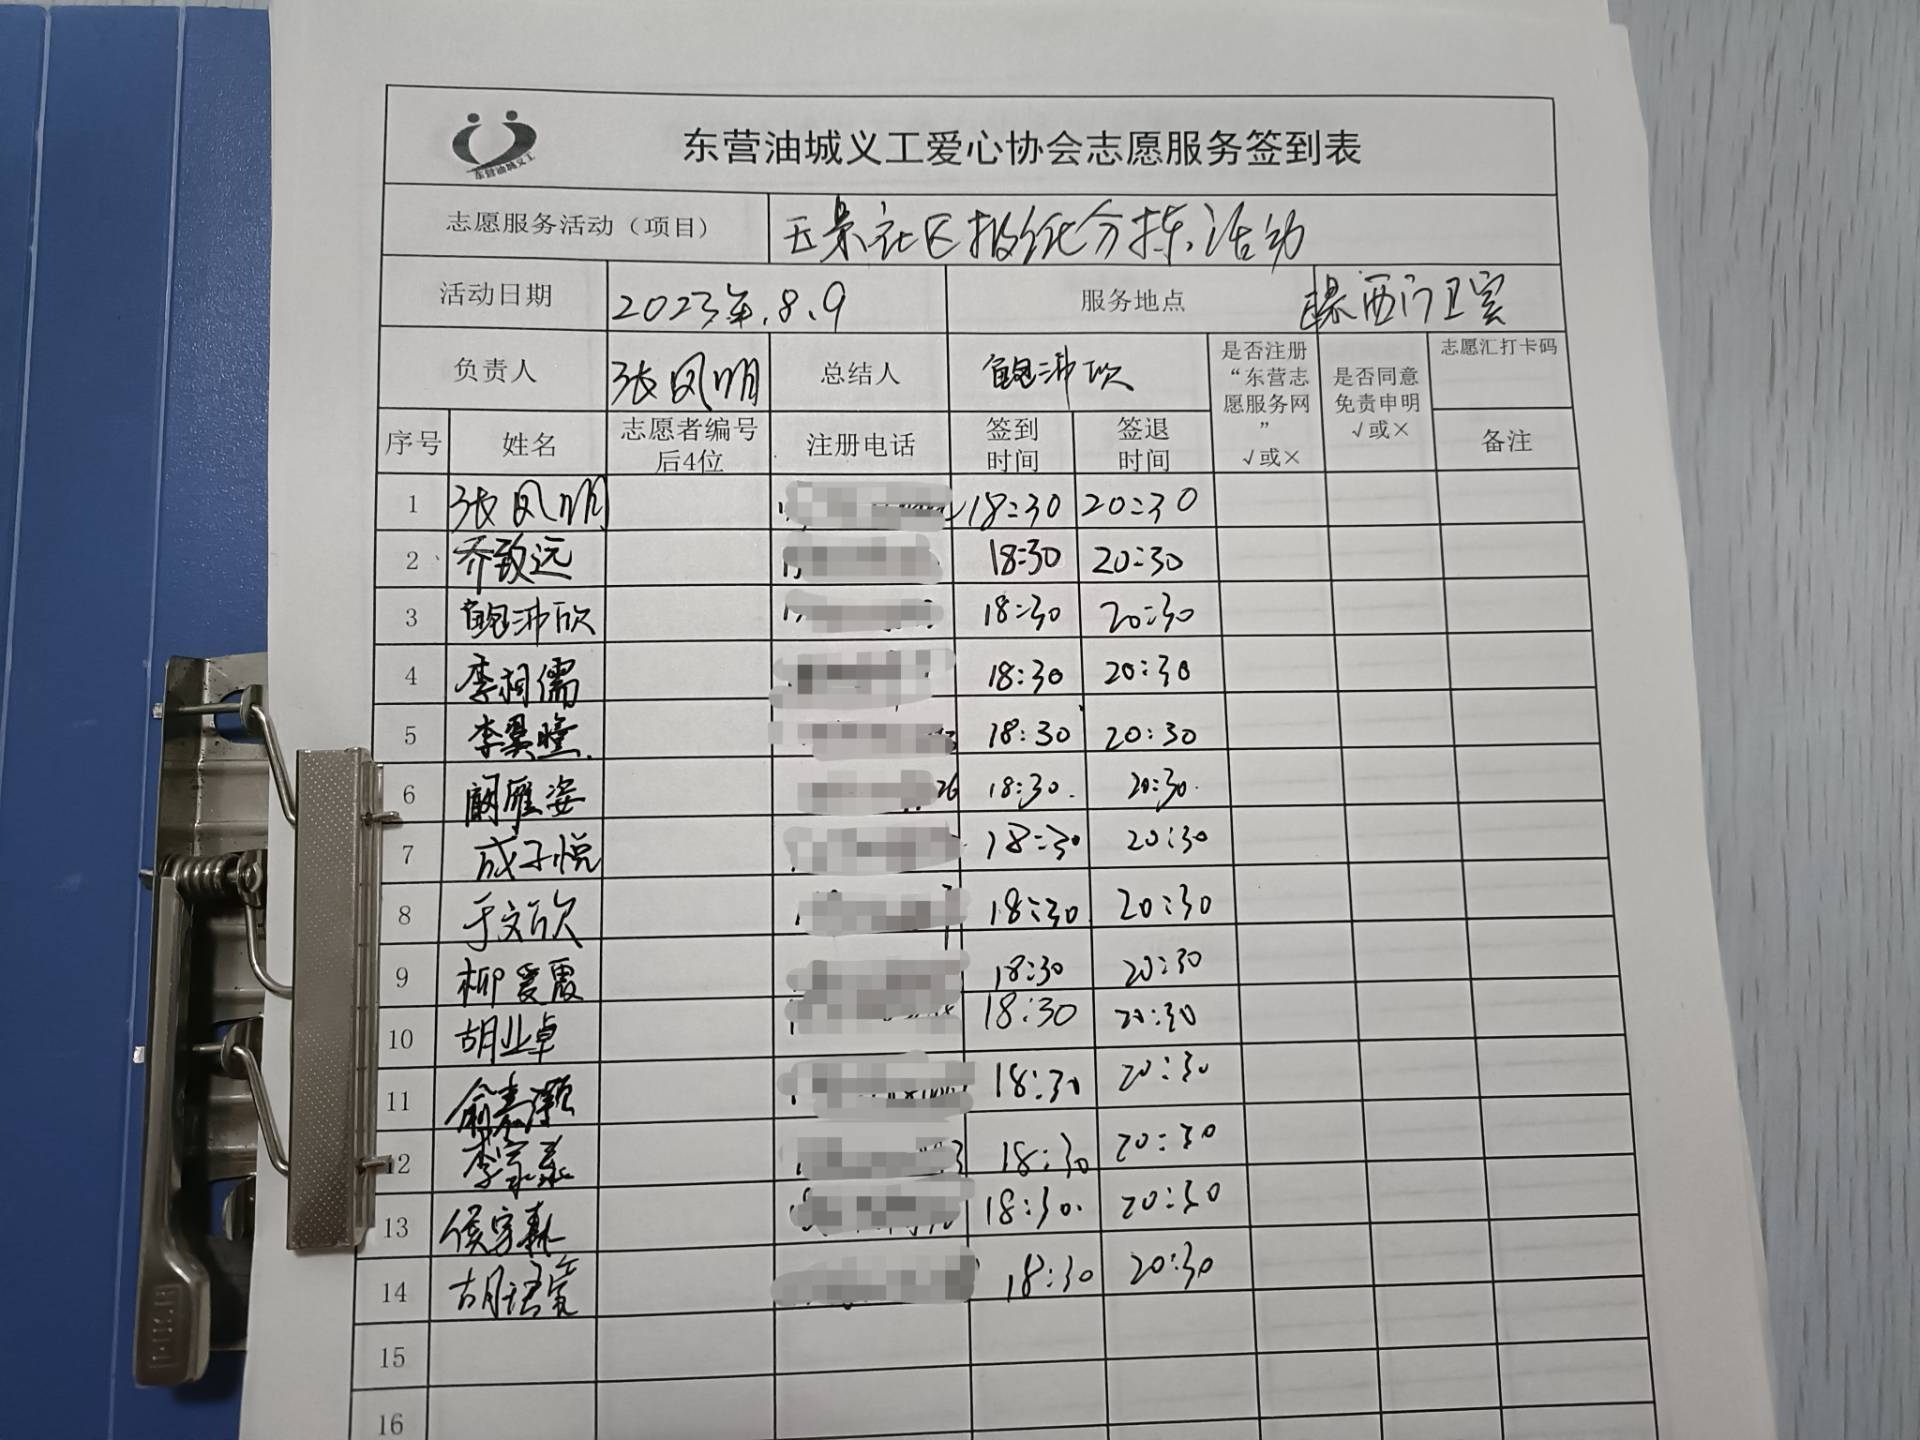 东营油城义工
东营油城义工爱心协会志愿服务签到表
志愿服务活动（项目） 玉景社区报纸分拣活动
活动日期 2023年.8.9 服务地点 西门卫室
负责人 张凤明 总结人 鲍沛欣 是否注册“东营志愿服务网” √或× 是否同意免责申明 √或× 志愿汇打卡码
序号 姓名 志愿者编号后4位 注册电话 签到时间 签退时间 备注
1 张凤明 18:30 20:30
2 乔致远 18:30 20:30
3 鲍沛欣 18:30 20:30
4 李相儒 18:30 20:30
5 李昊瞳 18:30 20:30
6 阚雁姿 26 18:30. 20:30.
7 成子悦 18:30 20:30
8 于文欣 18:30 20:30
9 柳爱霞 18:30 20:30
10 胡业卓 18:30 20:30
11 俞嘉灏 18:30 20:30
12 李家 3 18:30 20:30
13 侯宇森 18:30. 20:30
14 胡语 18:30 20:30
15
16